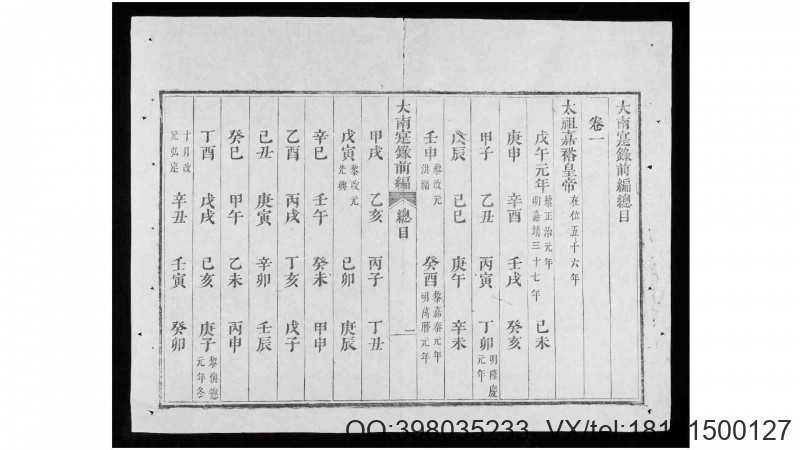 大南寔錄前編總目
卷一
太祖嘉裕皇帝 在位五十六年
戊午元年 黎正治元年 明嘉靖三十七年 己未
庚申 辛酉 壬戌 癸亥
甲子 乙丑 丙寅 丁卯 明隆慶元年
戊辰 己巳 庚午 辛未
壬申 黎改元洪福 癸酉 黎嘉泰元年 明萬曆元年
大南寔錄前編 總目 一
甲戌 乙亥 丙子 丁丑
戊寅 黎改元光興 己卯 庚辰
辛巳 壬午 癸未 甲申
乙酉 丙戌 丁亥 戊子
己丑 庚寅 辛卯 壬辰
癸巳 甲午 乙未 丙申
丁酉 戊戌 己亥 庚子 黎慎德元年冬
十月改元弘定 辛丑 壬寅 癸卯
QQ:398035233 VX/tel:181
1500127